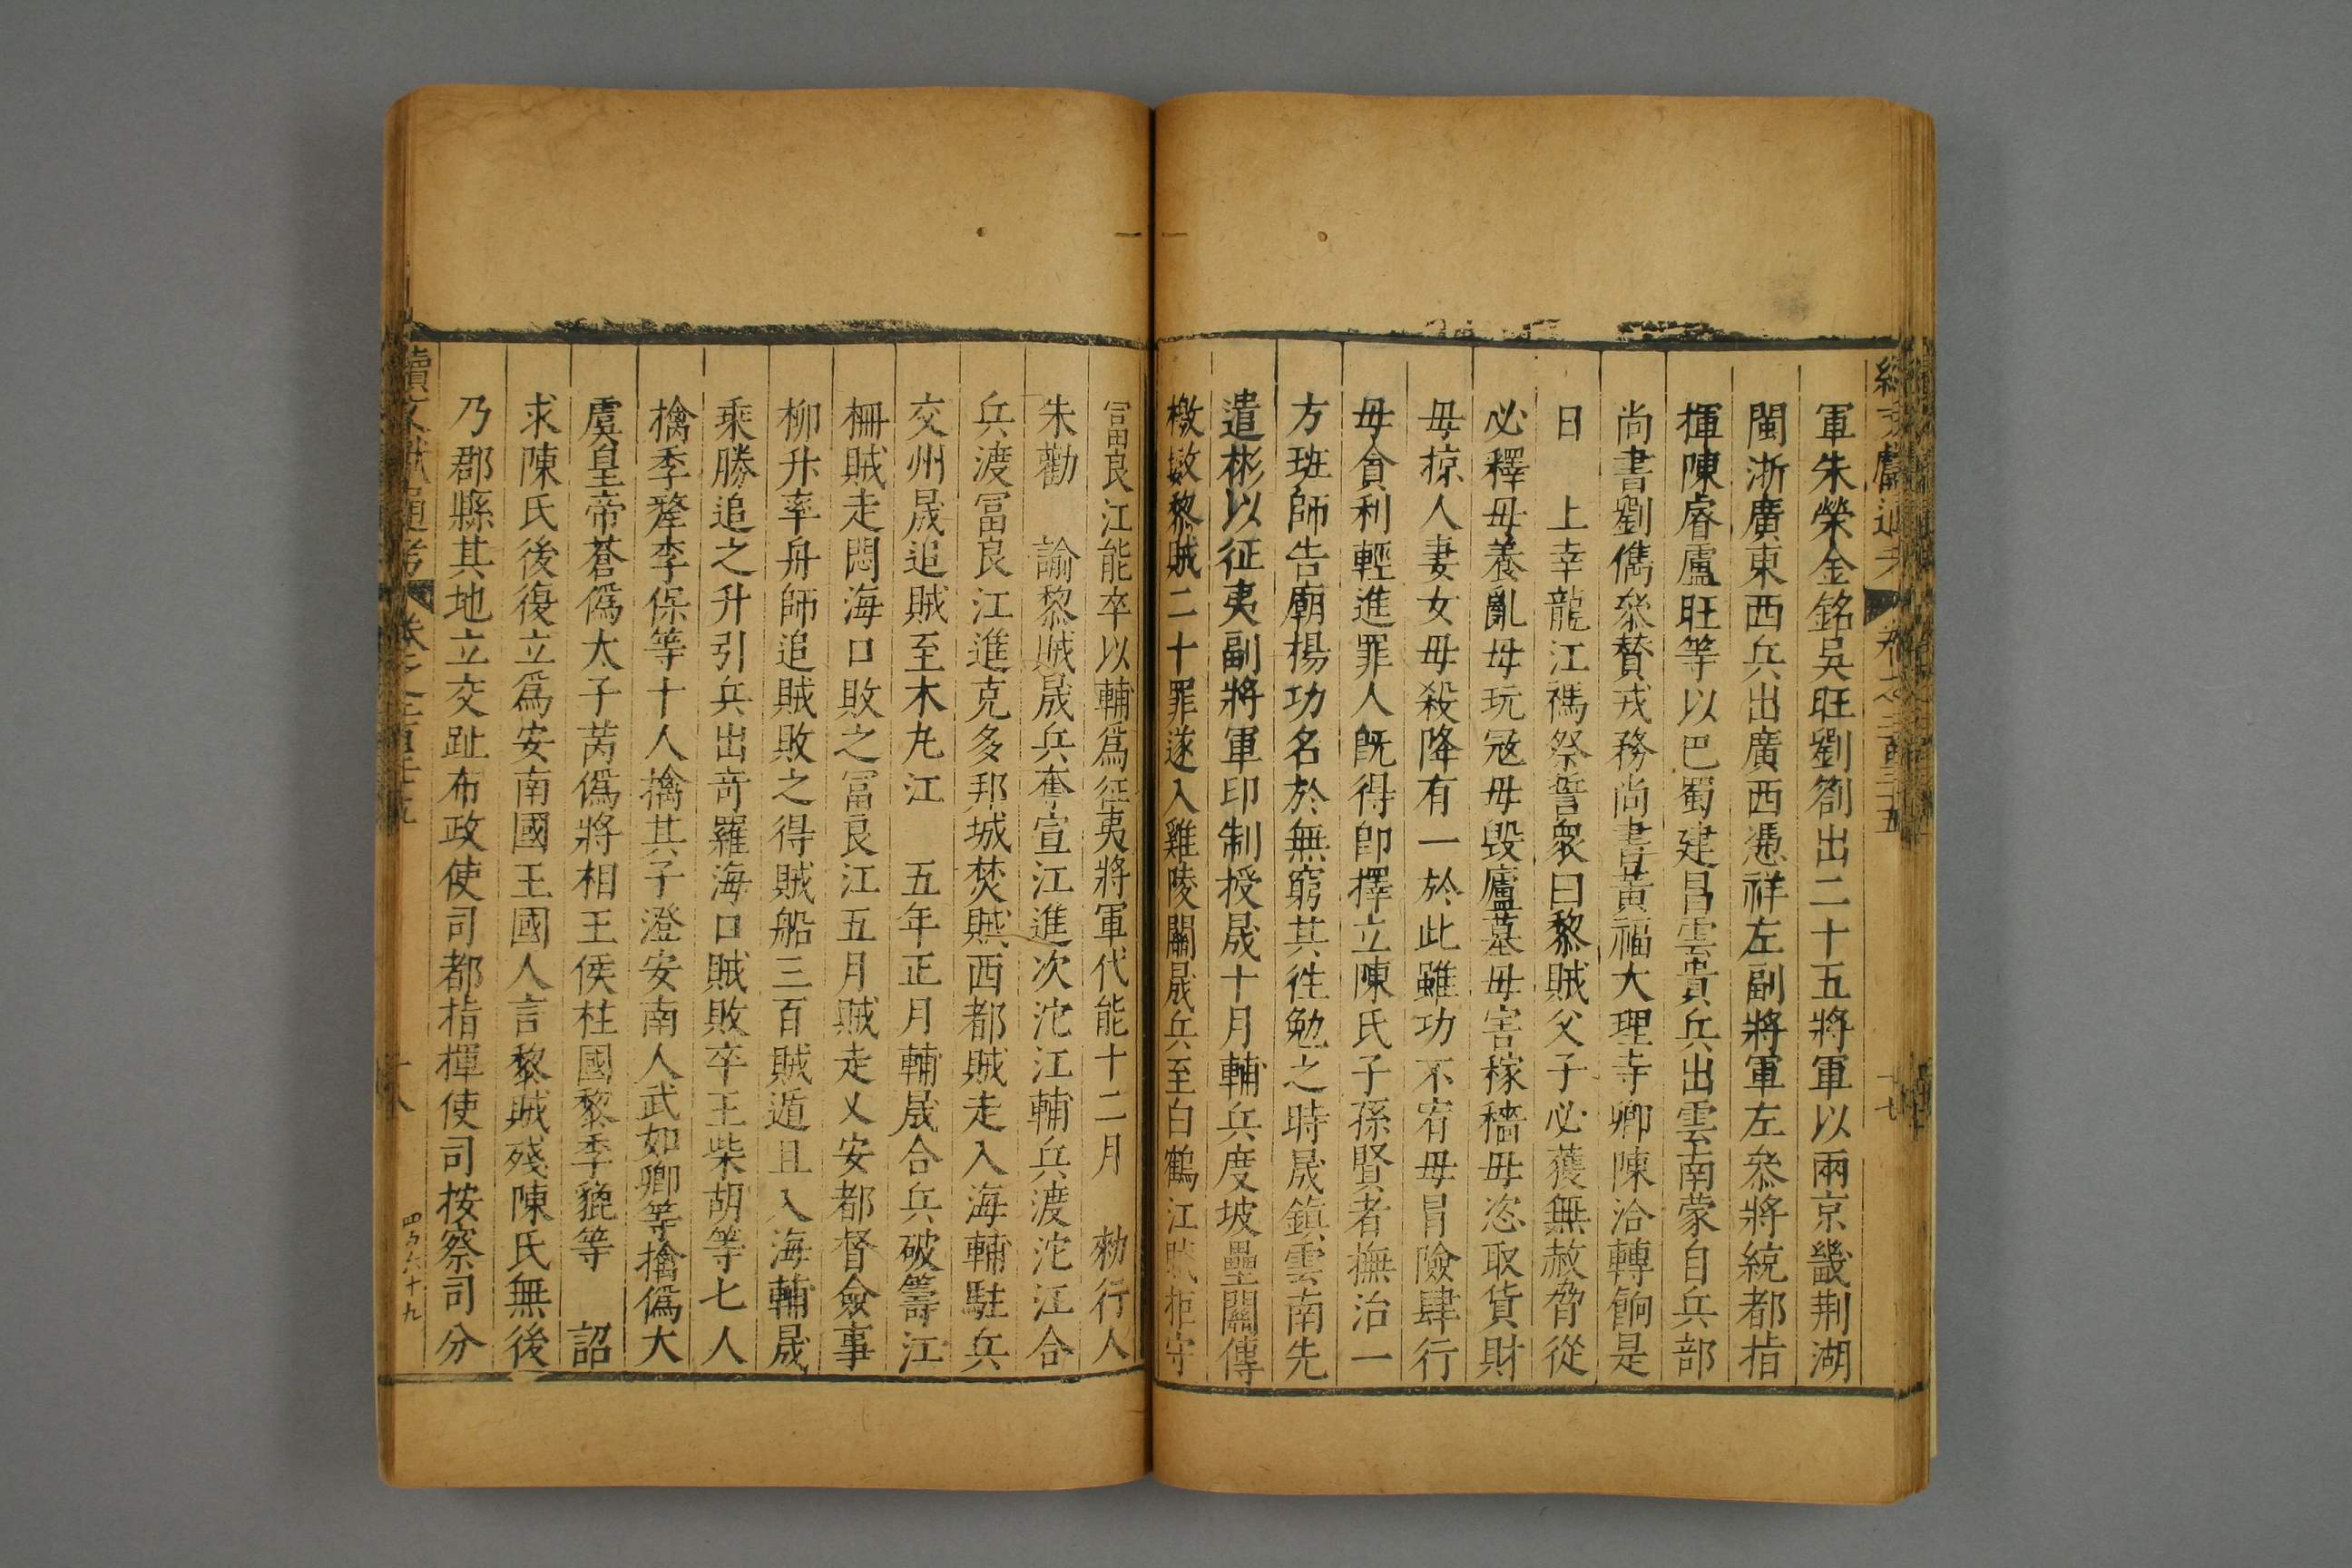 軍朱榮金銘吳旺劉劄出二十五將軍以兩京畿荆湖
閩浙廣東西兵出廣西憑祥左副將軍左叅將統都指
揮陳睿盧旺等以巴蜀建昌雲貴兵出雲南蒙自兵部
尚書劉儁叅賛戎務尚書黃福大理寺卿陳洽轉餉是
日　上幸龍江禡祭誓衆曰黎賊父子必獲無赦脅從
必釋毋養亂毋玩冦毋毀廬墓毋害稼穡毋恣取貨財
毋掠人妻女毋殺降有一於此雖功不宥毋冒險肆行
毋貪利輕進罪人旣得卽擇立陳氏子孫賢者撫治一
方班師告廟揚功名於無窮其徃勉之時晟鎮雲南先
遣彬以征夷副將軍印制授晟十月輔兵度坡壘關傳
檄數黎賊二十罪遂入雞陵關晟兵至白鶴江賊拒守
冨良江能卒以輔爲征夷將軍代能十二月　勑行人
朱勸　諭黎賊晟兵奪宣江進次沱江輔兵渡沱江合
兵渡冨良江進克多邦城焚賊西都賊走入海輔駐兵
交州晟追賊至木丸江　五年正月輔晟合兵破籌江
柵賊走悶海口敗之冨良江五月賊走乂安都督僉事
柳升率舟師追賊敗之得賊船三百賊遁且入海輔晟
乘勝追之升引兵出奇羅海口賊敗卒王柴胡等七人
擒季犛李保等十人擒其子澄安南人武如卿等擒僞大
虞皇帝蒼僞太子芮僞將相王侯柱國黎季貔等　詔
求陳氏後復立爲安南國王國人言黎賊殘陳氏無後
乃郡縣其地立交趾布政使司都指揮使司按察司分
續文獻通考
十八
四百六十九